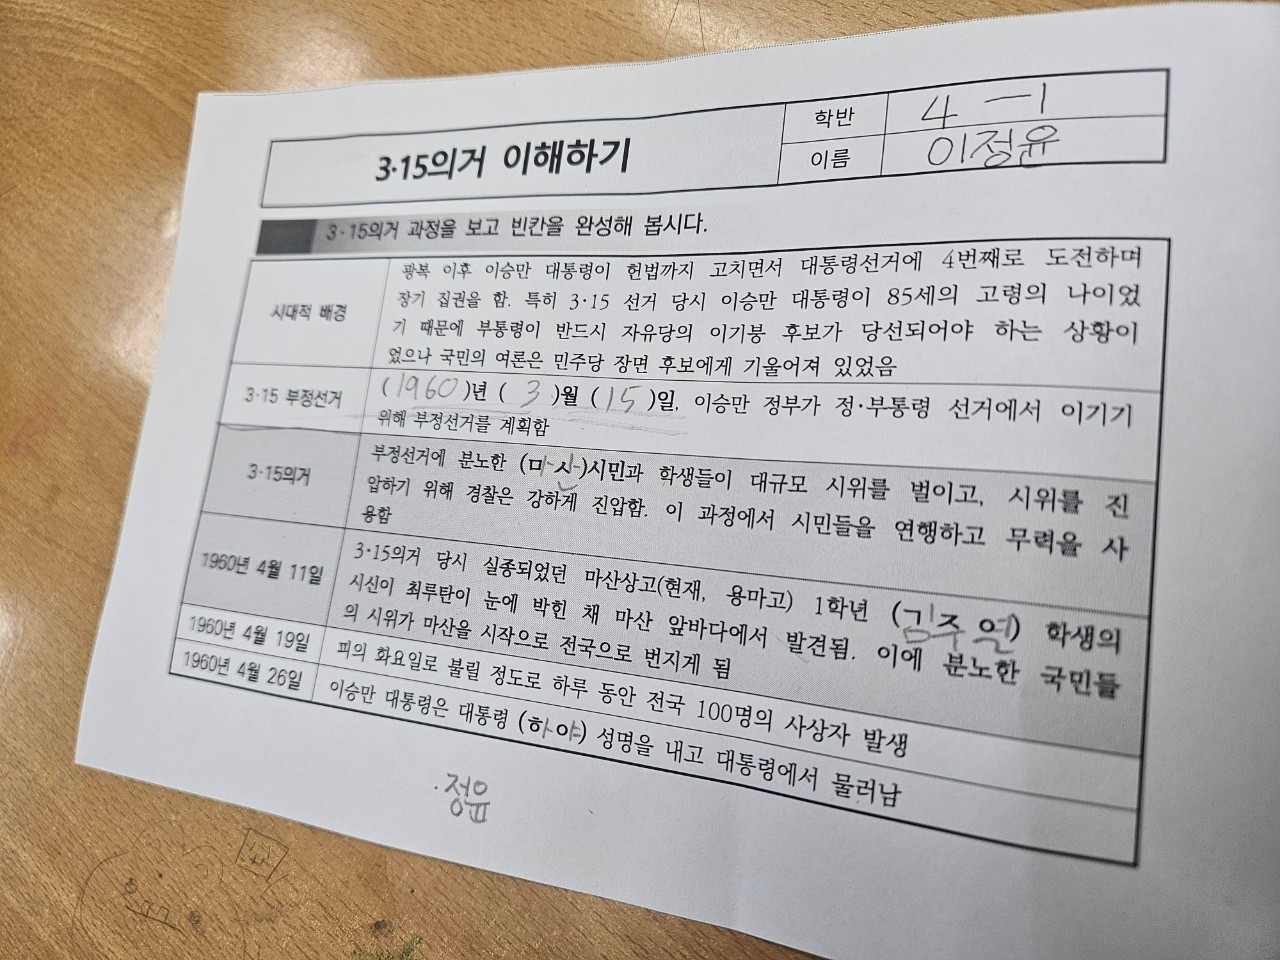 3·15의거 이해하기
학반 4-1
이름 이정윤
3·15의거 과정을 보고 빈칸을 완성해 봅시다.
시대적 배경
광복 이후 이승만 대통령이 헌법까지 고치면서 대통령선거에 4번째로 도전하며
장기 집권을 함. 특히 3·15 선거 당시 이승만 대통령이 85세의 고령의 나이었
기 때문에 부통령이 반드시 자유당의 이기붕 후보가 당선되어야 하는 상황이
었으나 국민의 여론은 민주당 장면 후보에게 기울어져 있었음
3·15 부정선거
(1960)년 (3)월 (15)일, 이승만 정부가 정·부통령 선거에서 이기기
위해 부정선거를 계획함
3·15의거
부정선거에 분노한 (마산)시민과 학생들이 대규모 시위를 벌이고, 시위를 진
압하기 위해 경찰은 강하게 진압함. 이 과정에서 시민들을 연행하고 무력을 사
용함
1960년 4월 11일
3·15의거 당시 실종되었던 마산상고(현재, 용마고) 1학년 (김주열) 학생의
시신이 최루탄이 눈에 박힌 채 마산 앞바다에서 발견됨. 이에 분노한 국민들
의 시위가 마산을 시작으로 전국으로 번지게 됨
1960년 4월 19일
피의 화요일로 불릴 정도로 하루 동안 전국 100명의 사상자 발생
1960년 4월 26일
이승만 대통령은 대통령 (하야) 성명을 내고 대통령에서 물러남
정윤